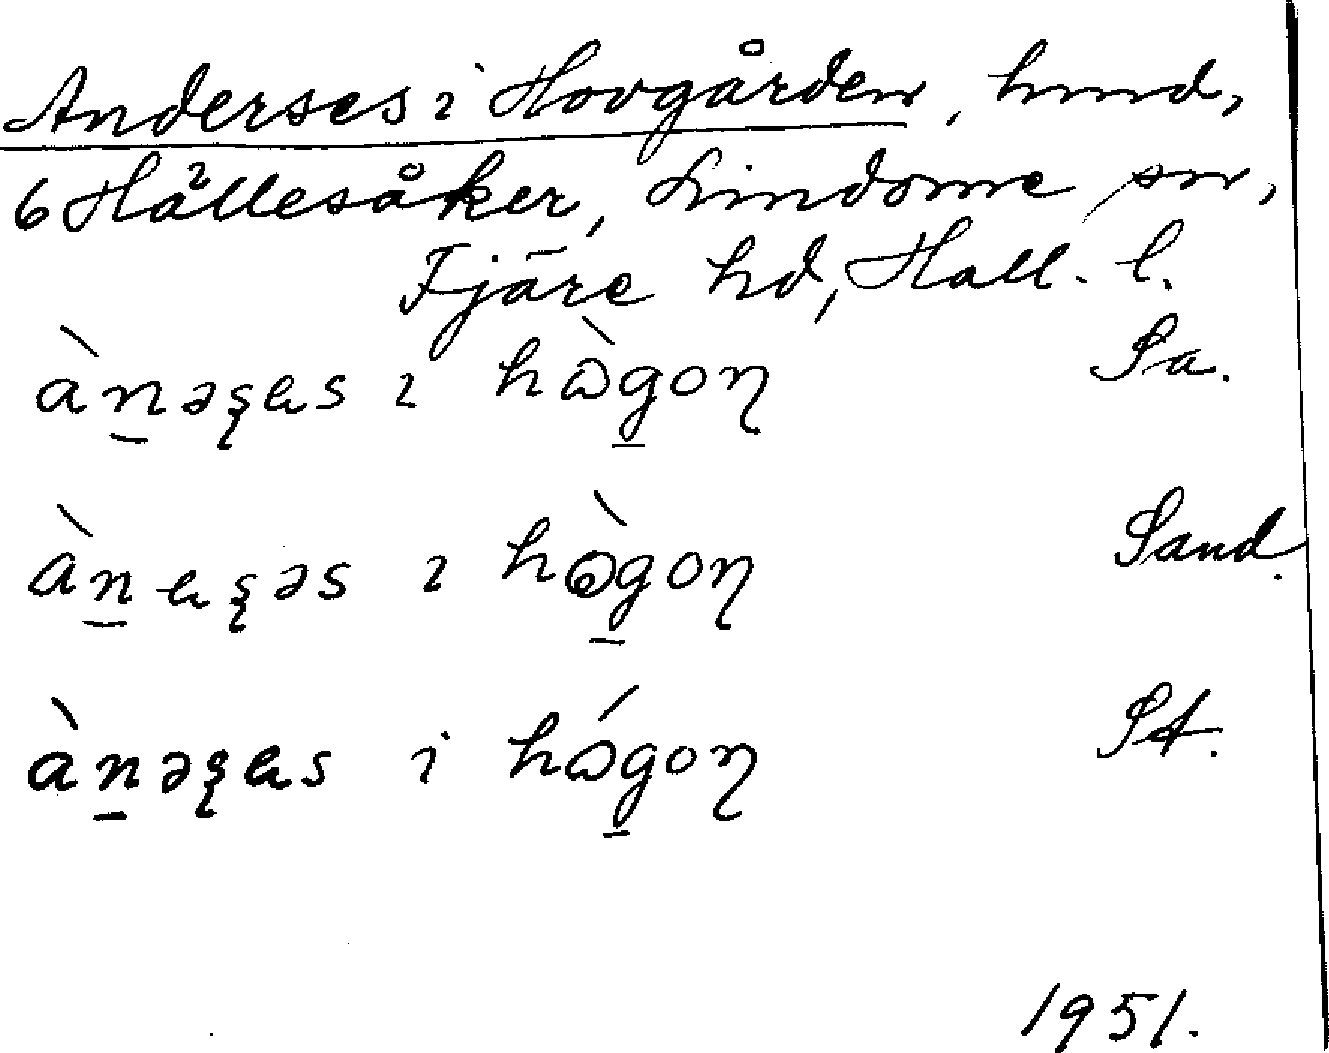 Anderses i Hovgården, hmd,
6 Hällesåker, Lindome sn,
Fjäre hd, Hall. l.
àn̲əʂɐs ı hɷ̀g̲oɳ Sa.
àn̲ɐʂəs ı hɷ̀g̲oɳ Sand.
àn̲əʂɐs i hɷ́g̲oɳ St.
1951.